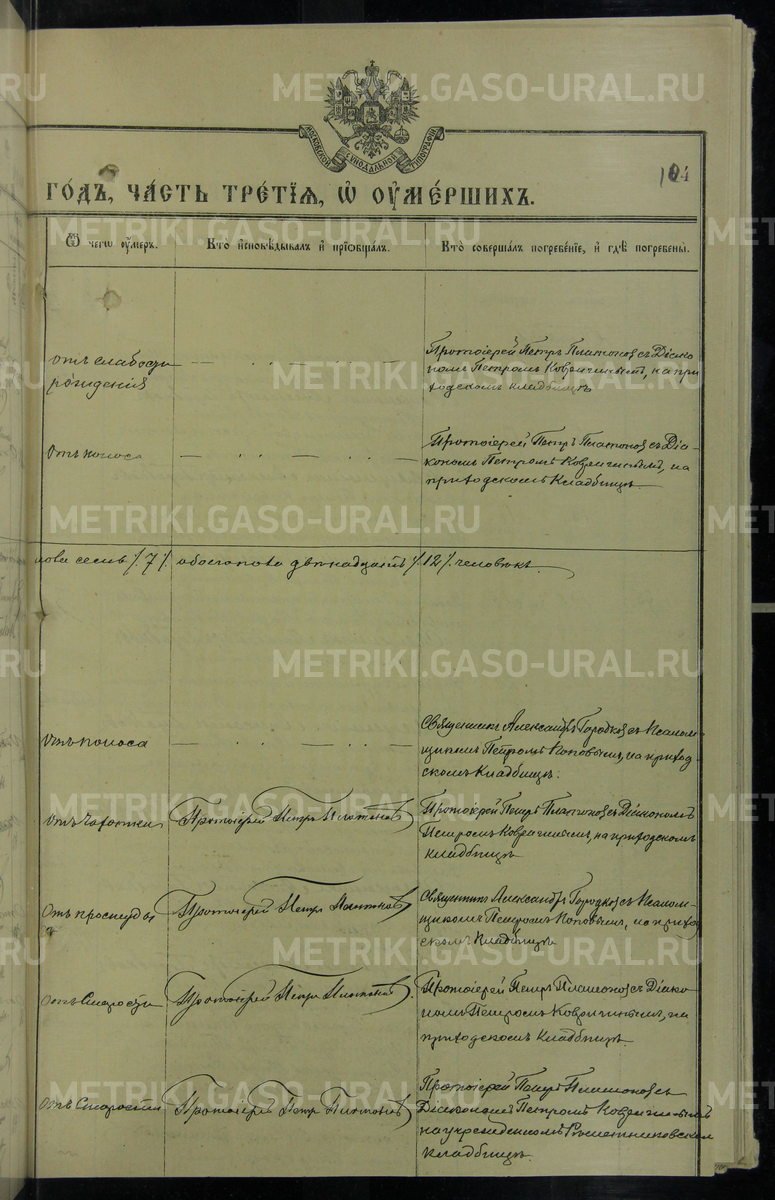 METRIKI.GASO-URAL.RU
МОСКОВСКОЙ СѴНОДАЛЬНОЙ ТИПОГРАФІИ
104
ГО́ДЪ, ЧА́СТЬ ТРЕ́ТІЯ, Ѽ ОУ҆МЕ́РШИХЪ.
Ѿ чегѡ оу҆́меръ.
Кто̀ и҆сповѣ́дывалъ и҆ прїѻбща́лъ.
Кто̀ соверша́лъ погребе́нїе, и҆ гдѣ̀ погребены̀.
Отъ слабости
рожденія
Протоіерей Петръ Платоновъ съ Діако
номъ Петромъ Ковригинымъ, на при
ходскомъ кладбищѣ
Отъ поноса
Протоіерей Петръ Платоновъ съ Діа-
кономъ Петромъ Ковригинымъ, на
приходскомъ кладбищѣ.
пола семь /7/ обоего пола двѣнадцать /12/ человѣкъ.
Отъ поноса
Священникъ Александръ Городковъ съ Псалом-
щикомъ Петромъ Поповымъ, на приход-
скомъ кладбищѣ.
Отъ чахотки
Протоіерей Петръ Платоновъ
Протоіерей Петръ Платоновъ съ Діакономъ
Петромъ Ковригинымъ, на приходскомъ
кладбищѣ
Отъ простуды
Протоіерей Петръ Платоновъ
Священникъ Александръ Городковъ съ Псалом-
щикомъ Петромъ Поповымъ, на приход
скомъ кладбищѣ
Отъ старости
Протоіерей Петръ Платоновъ
Протоіерей Петръ Платоновъ съ Діако
номъ Петромъ Ковригинымъ, на
приходскомъ кладбищѣ.
Отъ старости
Протоіерей Петръ Платоновъ
Протоіерей Петръ Платоновъ съ
Діакономъ Петромъ Ковригинымъ
на
кладбищѣ.